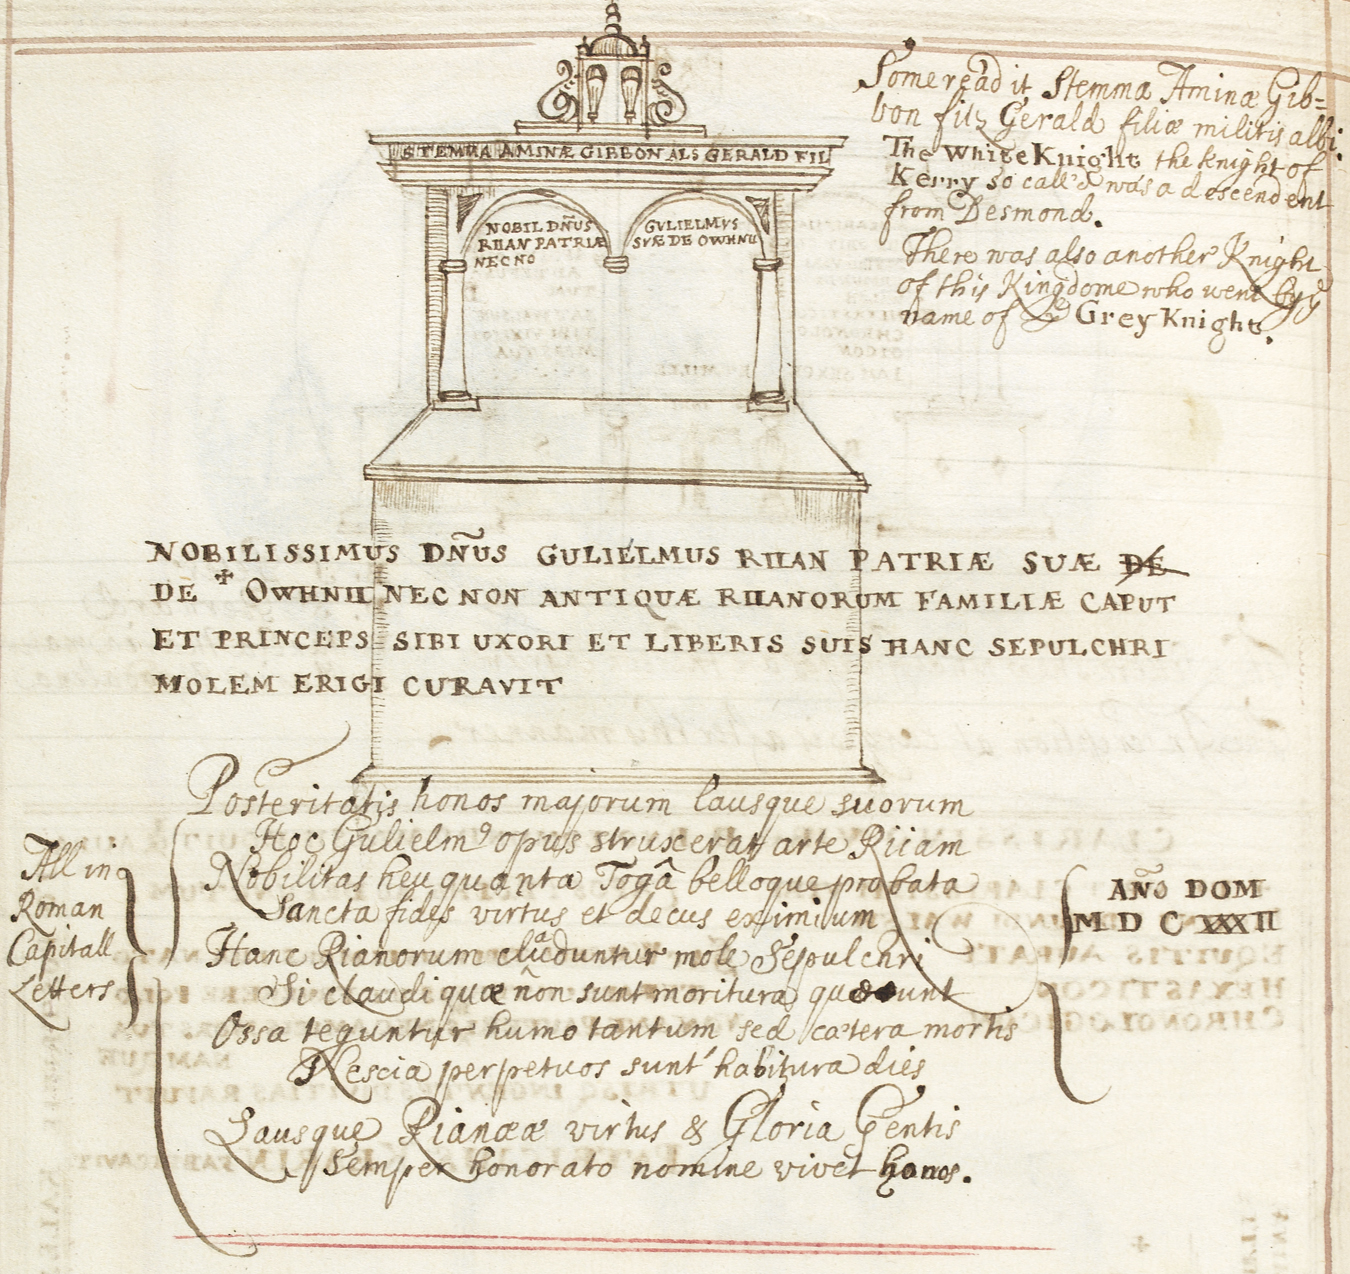 Some read it Stemma Aminæ Gib=
bon fitz Gerald filiæ militis albi.
The White Knight the knight of
Kerry so call'd was a descendent
from Desmond.
There was also another Knight
of this Kingdome who went by yᵉ
name of yᵉ Grey Knight.
STEMMA AMINÆ GIBBON ALS GERALD FIL
NOBIL DÑUS
RIIAN PATRIÆ
NECNO
GULIELMUS
SUÆ DE OWHNII
NOBILISSIMUS DÑUS GULIELMUS RIIAN PATRIÆ SUÆ DE
DE + OWHNII NEC NON ANTIQUÆ RIIANORUM FAMILIÆ CAPUT
ET PRINCEPS SIBI UXORI ET LIBERIS SUIS HANC SEPULCHRI
MOLEM ERIGI CURAVIT
Posteritatis honos majorum lausque suorum
Hoc Gulielmꝰ opus struxerat arte Riiam
Nobilitas heu quanta Togâ belloque probata
Sancta fides virtus et decus eximium
Hanc Rianorum clauduntur mole Sepulchri
Si claudi quæ ñon sunt moritura queunt
Ossa teguntur humo tantum sed cætera mortis
Nescia perpetuos sunt habitura dies
Lausque Rianææ virtus & Gloria Gentis
Semper honorato nomine vivet honos.
All in
Roman
Capitall
Letters
AÑO DOM
M D C XXXII